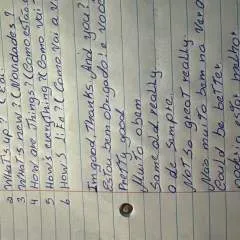 2 What's up? (E aí.
3 What's new? (Novidades?
4 How are Things? (Como estão
5 How's everything? (Como vai
6 How's life? (Como vai a v
I'm good, thanks. And you?
Estou bem obrigado! e você
Pretty good
Muito bem.
Same old really
o de sempre.
Not so great really
Não muito bem na verd
Could be better.
poderia estar melhor.